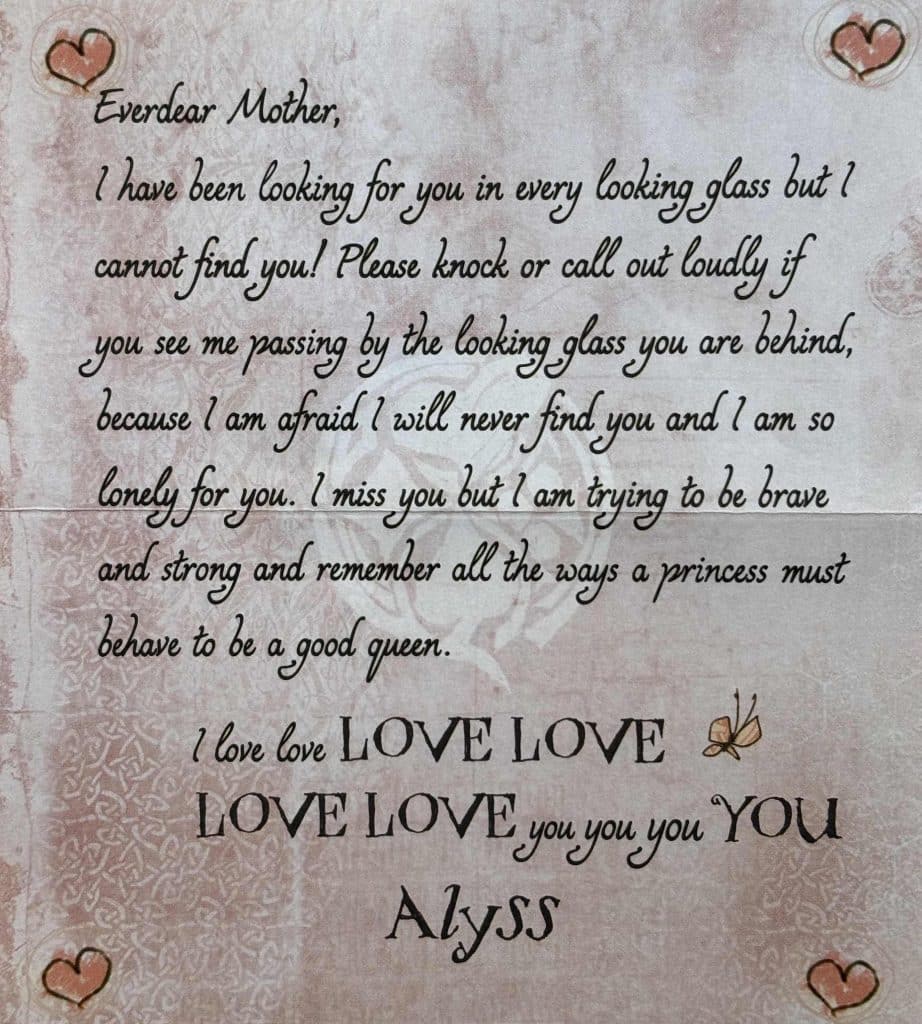 Everdear Mother,
I have been looking for you in every looking glass but I
cannot find you! Please knock or call out loudly if
you see me passing by the looking glass you are behind,
because I am afraid I will never find you and I am so
lonely for you. I miss you but I am trying to be brave
and strong and remember all the ways a princess must
behave to be a good queen.
I love love LOVE LOVE
LOVE LOVE you you you YOU
Alyss